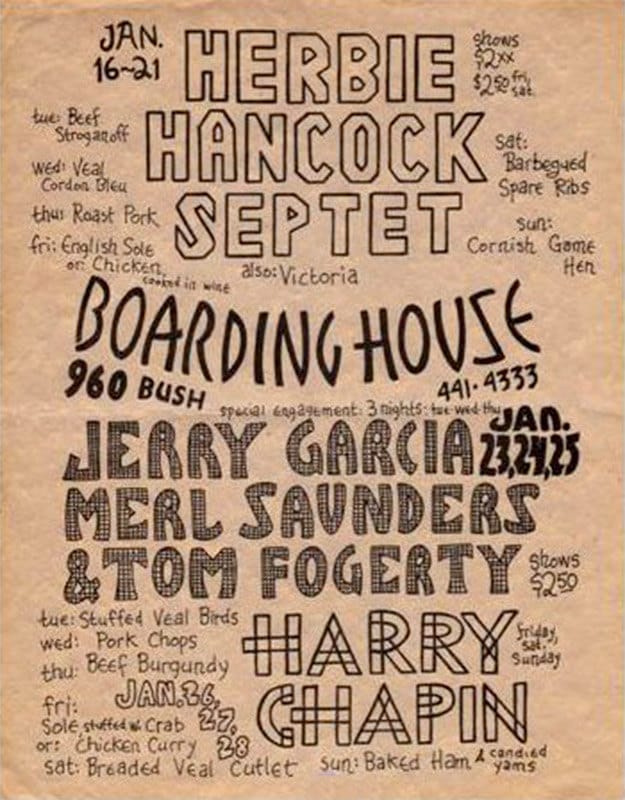 JAN.
16~21
HERBIE
HANCOCK
SEPTET
shows
$2xx
$2.50 fri, sat.
tue: Beef
Stroganoff
wed: Veal
Cordon Bleu
thu: Roast Pork
fri: English Sole
or: Chicken,
cooked in wine
sat:
Barbequed
Spare Ribs
sun:
Cornish Game
Hen
also: Victoria
BOARDING HOUSE
960 BUSH
441-4333
special engagement: 3 nights: tue-wed-thu
JAN.
23,24,25
JERRY GARCIA
MERL SAUNDERS
& TOM FOGERTY
shows
$2.50
tue: Stuffed Veal Birds
wed: Pork Chops
thu: Beef Burgundy
HARRY
CHAPIN
friday,
sat.,
Sunday
JAN. 26,
27,
28
fri:
Sole, stuffed w. Crab
or: Chicken Curry
sat: Breaded Veal Cutlet
sun: Baked Ham & candied
yams